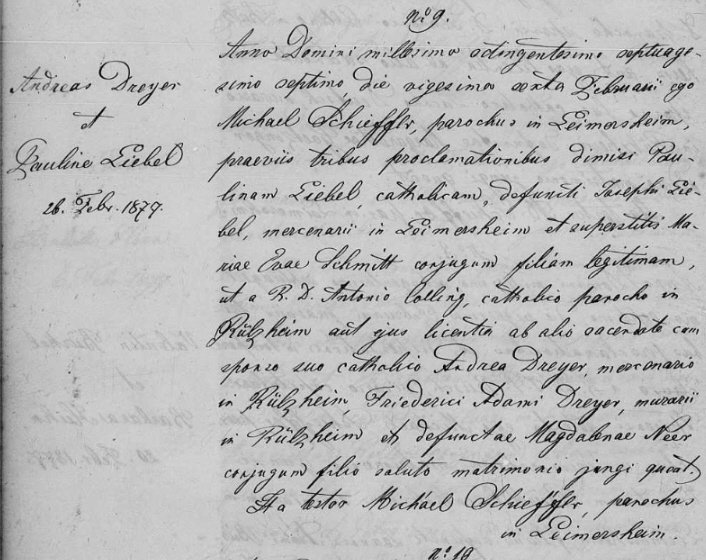 No 9.
Andreas Dreyer
et
Pauline Liebel
26. Febr. 1877.
Anno Domini millesimo octingentesimo septuage-
simo septimo, die vigesima sexta Februarii ego
Michael Schieffler, parochus in Leimersheim,
praeviis tribus proclamationibus dimisi Pau-
linam Liebel, catholicam, defuncti Josephi Lie-
bel, mercenarii in Leimersheim et superstitis Ma-
riae Evae Schmitt conjugum filiam legitimam,
ut a R. D. Antonio Colling, catholico parocho in
Rülzheim aut ejus licentia ab alio sacerdote cum
sponso suo catholico Andrea Dreyer, mercenario
in Rülzheim, Friederici Adami Dreyer, murarii
in Rülzheim et defunctae Magdalenae Neer
conjugum filio soluto matrimonio jungi queat.
Ita testor Michael Schieffler, parochus
in Leimersheim.
No 10